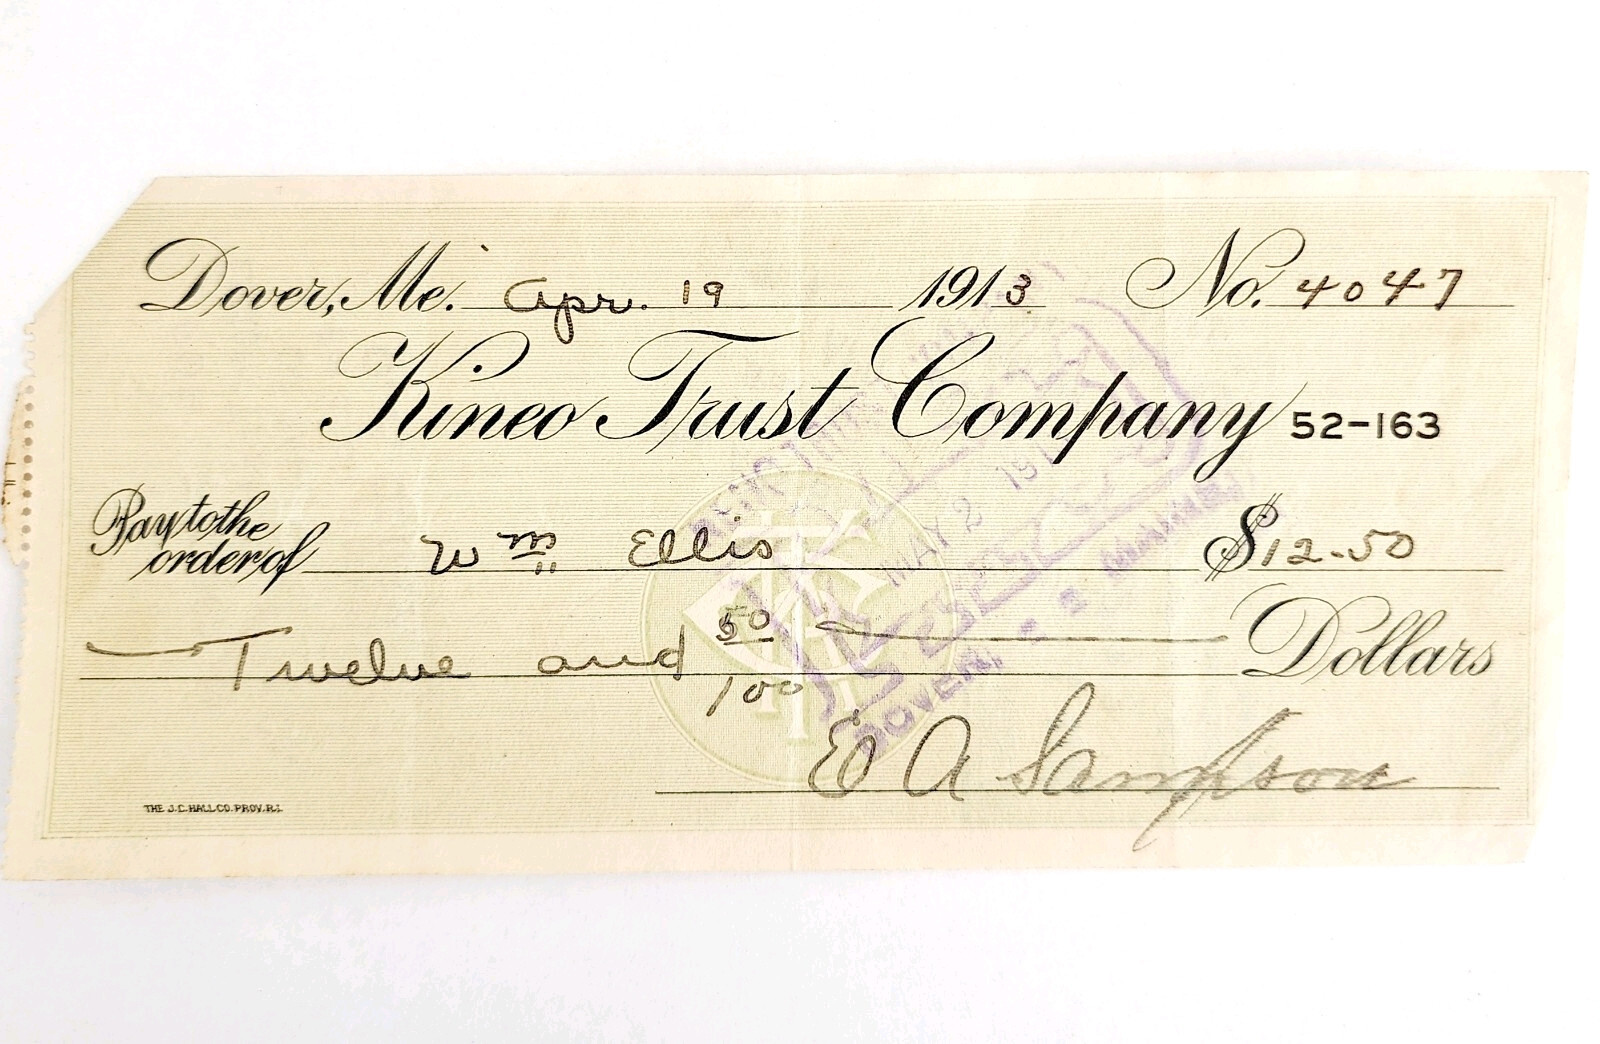 Dover, Me. Apr. 19 1913 No. 4047
Kineo Trust Company 52-163
Pay to the order of Wm Ellis $12.50
Twelve and 50/100 Dollars
E A Sampson
MAY 2 191
DOVER,
THE J.C. HALL CO. PROV. R.I.